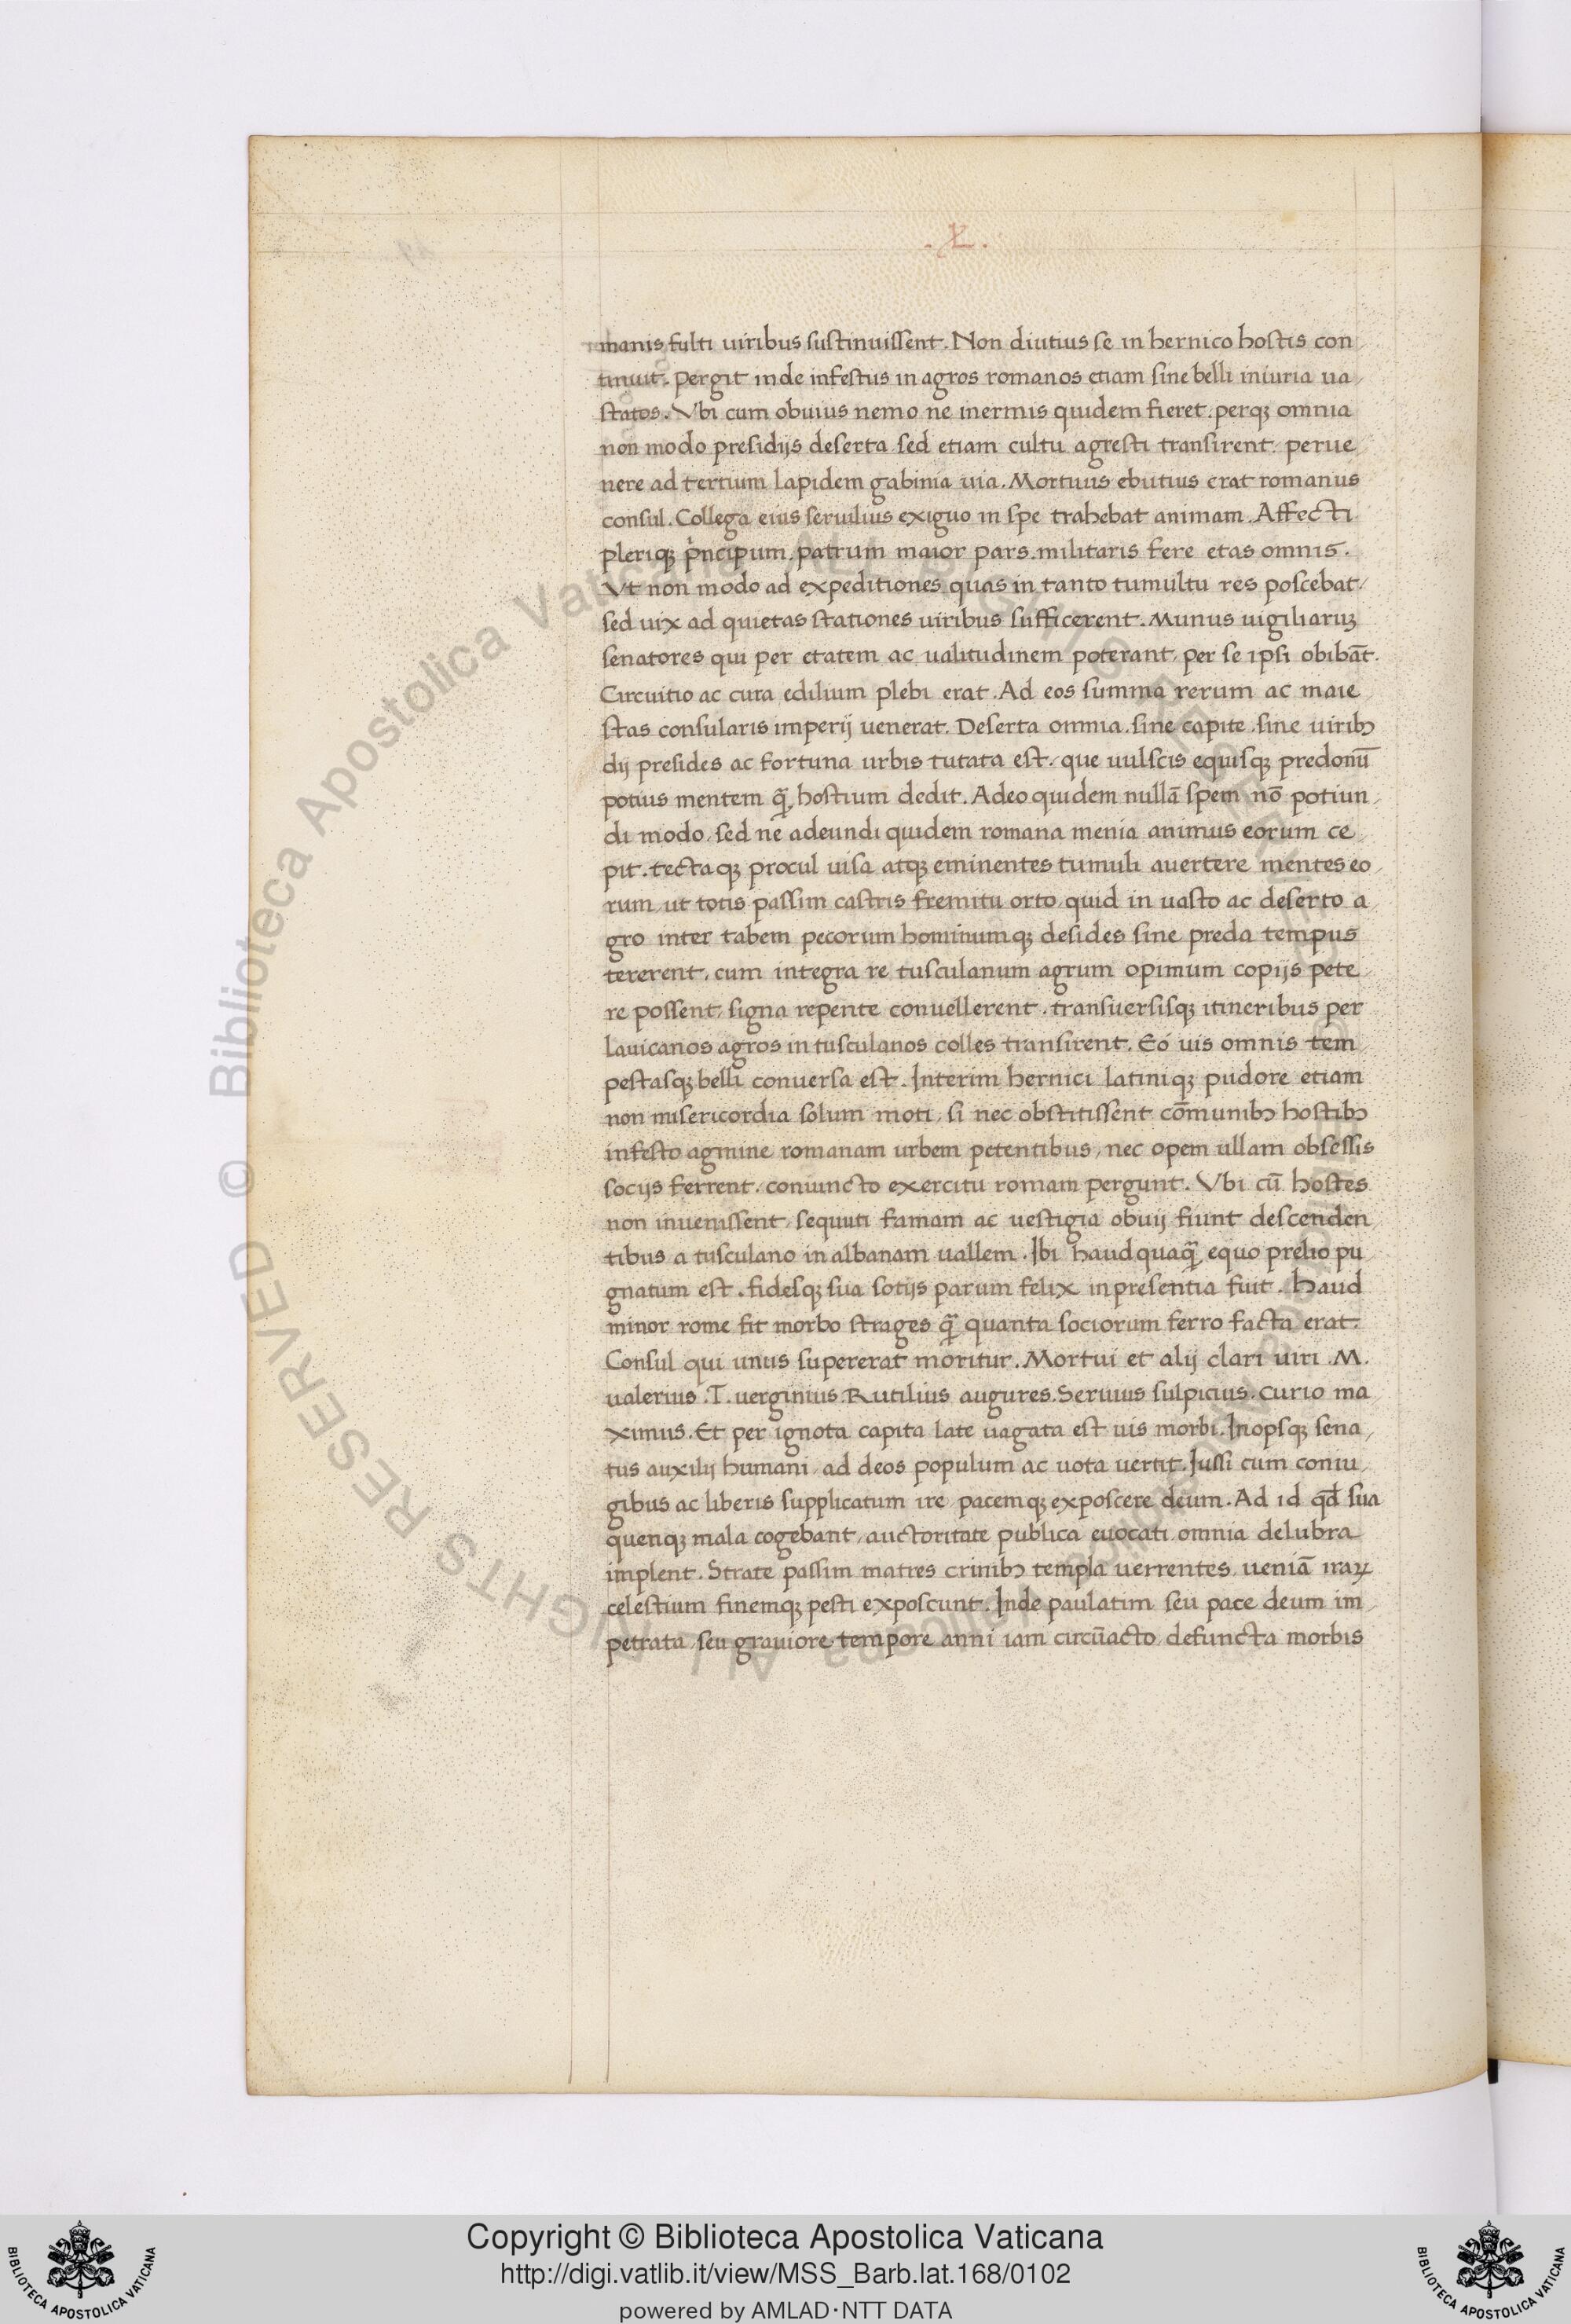 .X.
manis fulti uiribus sustinuissent. Non diutius se in hernico hostis con
tinuit. Pergit inde infestus in agros romanos etiam sine belli iniuria ua
statos. Vbi cum obuius nemo ne inermis quidem fieret. perqꝫ omnia
non modo presidijs deserta sed etiam cultu agresti transirent. perue
nere ad tertium lapidem gabinia uia. Mortuus ebutius erat romanus
consul. Collega eius seruilius exiguo in spe trahebat animam. Affecti
pleriqꝫ pͥncipum. patrum maior pars. militaris fere etas omnis.
Vt non modo ad expeditiones quas in tanto tumultu res poscebat.
sed uix ad quietas stationes uiribus sufficerent. Munus uigiliaruꝫ
senatores qui per etatem ac ualitudinem poterant, per se ipsi obibāt.
Circuitio ac cura edilium plebi erat. Ad eos summa rerum ac maie
stas consularis imperij uenerat. Deserta omnia. sine capite. sine uiribꝫ
dij presides ac fortuna urbis tutata est. que uulscis equisqꝫ predonū
potius mentem qꝫ̄ hostium dedit. Adeo quidem nullā spem nō potiun
di modo, sed ne adeundi quidem romana menia animus eorum ce
pit. tectaqꝫ procul uisa atqꝫ eminentes tumuli auertere mentes eo
rum ut totis passim castris fremitu orto quid in uasto ac deserto a
gro inter tabem pecorum hominumqꝫ desides sine preda tempus
tererent, cum integra re tusculanum agrum opimum copijs pete
re possent, signa repente conuellerent. transuersisqꝫ itineribus per
lauicanos agros in tusculanos colles transirent. Eó uis omnis tem
pestasqꝫ belli conuersa est. Interim hernici latiniqꝫ pudore etiam
non misericordia solum moti, si nec obstitissent cōmunibꝫ hostibꝫ
infesto agmine romanam urbem petentibus, nec opem ullam obsessis
socijs ferrent. coniuncto exercitu romam pergunt. Vbi cū hostes
non inuenissent, sequuti famam ac uestigia obuij fiunt descenden
tibus a tusculano in albanam uallem. Ibi haudquaqꝫ̄ equo prelio pu
gnatum est. fidesqꝫ sua sotijs parum felix in presentia fuit. Haud
minor rome fit morbo strages qꝫ̄ quanta sociorum ferro facta erat.
Consul qui unus supererat moritur. Mortui et alij clari uiri .M.
ualerius .T. uerginius. Rutilius augures. Seruius sulpicius. Curio ma
ximus. Et per ignota capita late uagata est uis morbi. Inopsqꝫ sena
tus auxilij humani, ad deos populum ac uota uertit. Jussi cum coniu
gibus ac liberis supplicatum ire pacemqꝫ exposcere deum. Ad id qd̄ sua
quenqꝫ mala cogebant, auctoritate publica euocati omnia delubra
implent. Strate passim matres crinibꝫ templa uerrentes, ueniā iraꝝ
celestium finemqꝫ pesti exposcunt. Inde paulatim seu pace deum im
petrata, seu grauiore tempore anni iam circūacto, defuncta morbis
© Biblioteca Apostolica Vaticana ALL RIGHTS RESERVED
Copyright © Biblioteca Apostolica Vaticana
http://digi.vatlib.it/view/MSS_Barb.lat.168/0102
powered by AMLAD·NTT DATA
BIBLIOTECA APOSTOLICA VATICANA
BIBLIOTECA APOSTOLICA VATICANA